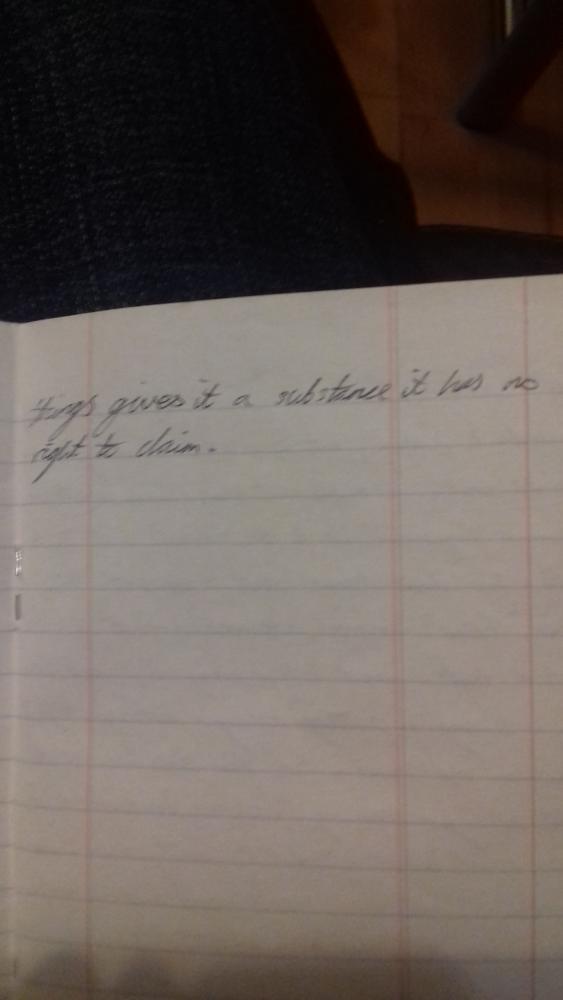 things gives it a substance it has no
right to claim.